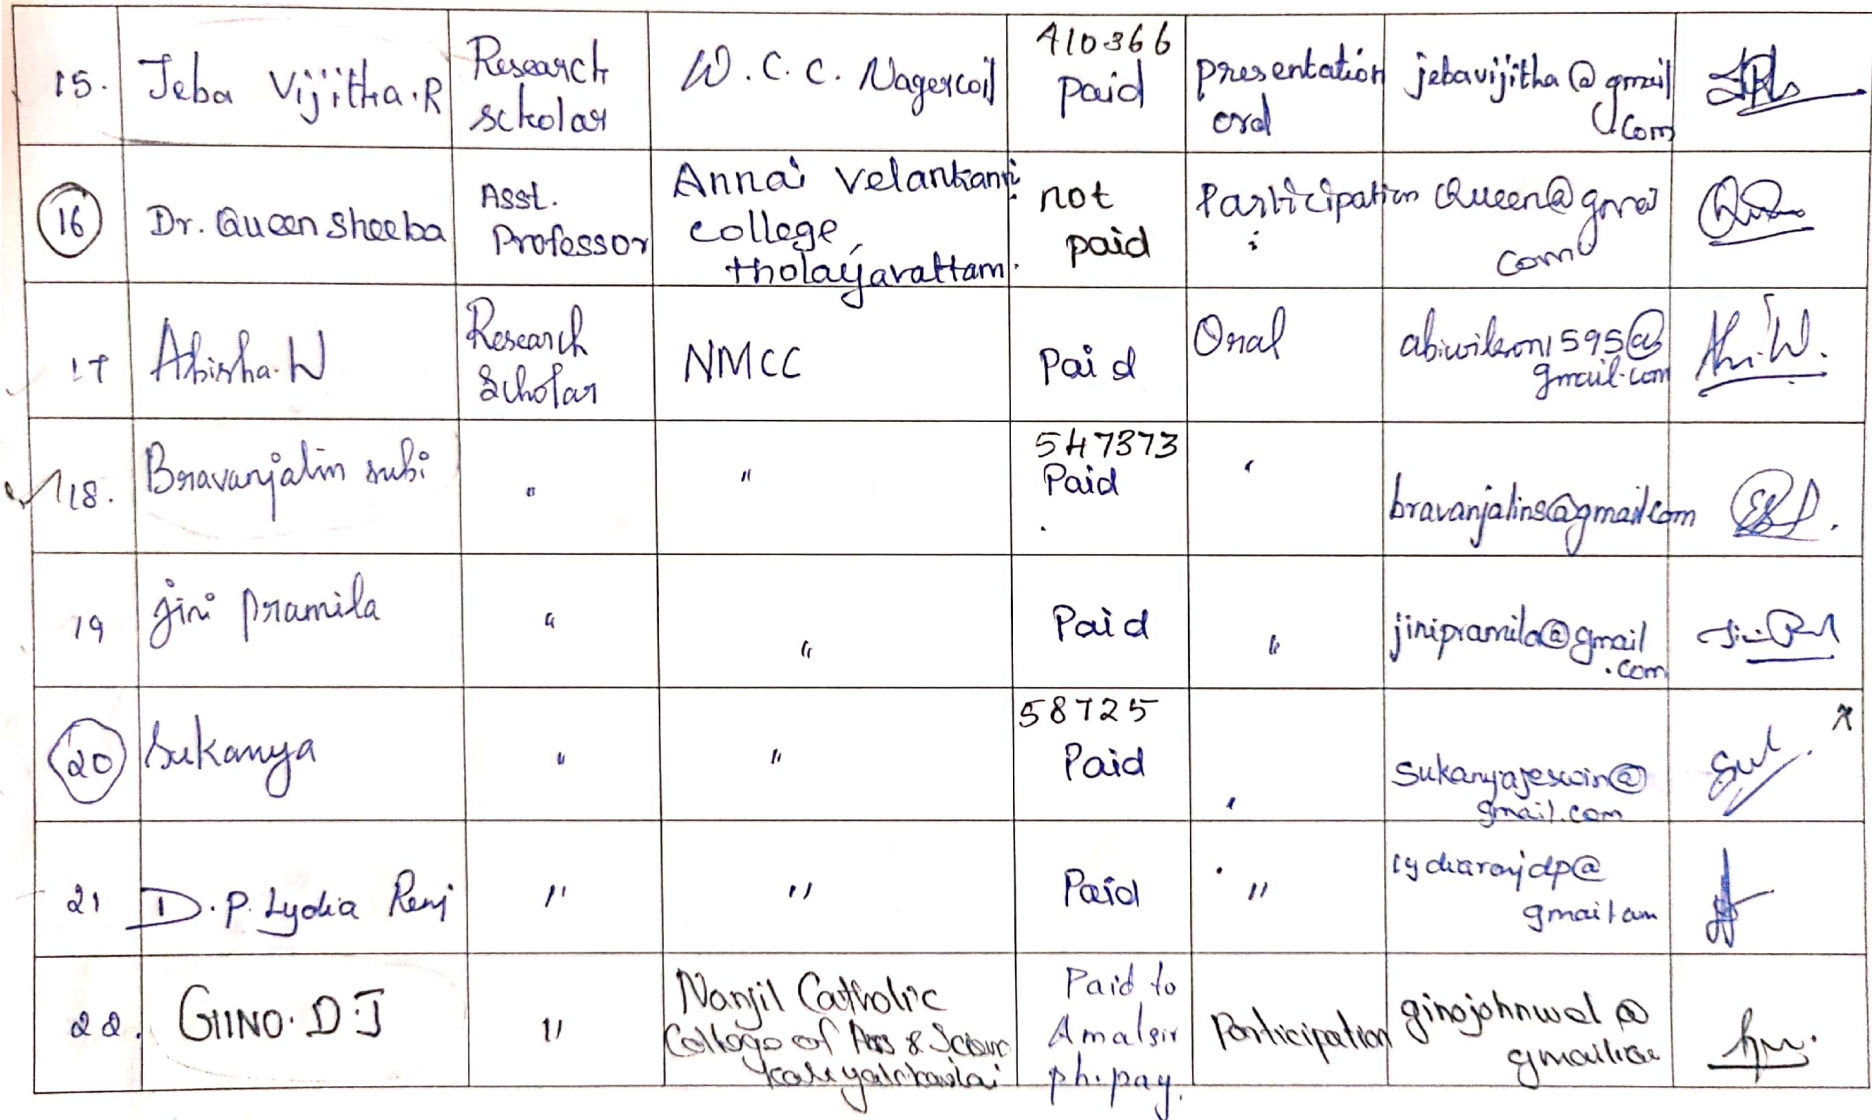 15. Jeba Vijitha.R Research scholar W.C.C. Nagercoil 410366 Paid presentation oral jebavijitha@gmail.com
16 Dr. Queen Sheeba Asst. Professor Annai Velankanni college, tholayavattam. not paid Participation Queen@gmai com
17 Abisha.W Research Scholar NMCC Paid Oral abiwilson1595@gmail.com
18. Bravanjalin subi " " 547373 Paid " bravanjalins@gmail.com
19 jini pramila " " Paid " jinipramila@gmail.com
20 Sukanya " " 58725 Paid " sukanyajeswin@gmail.com
21 D.P. Lydia Renj " " Paid "
22. GIINO. D J " Nanjil Catholic College of Paid to Amalsir ph.pay. Participation